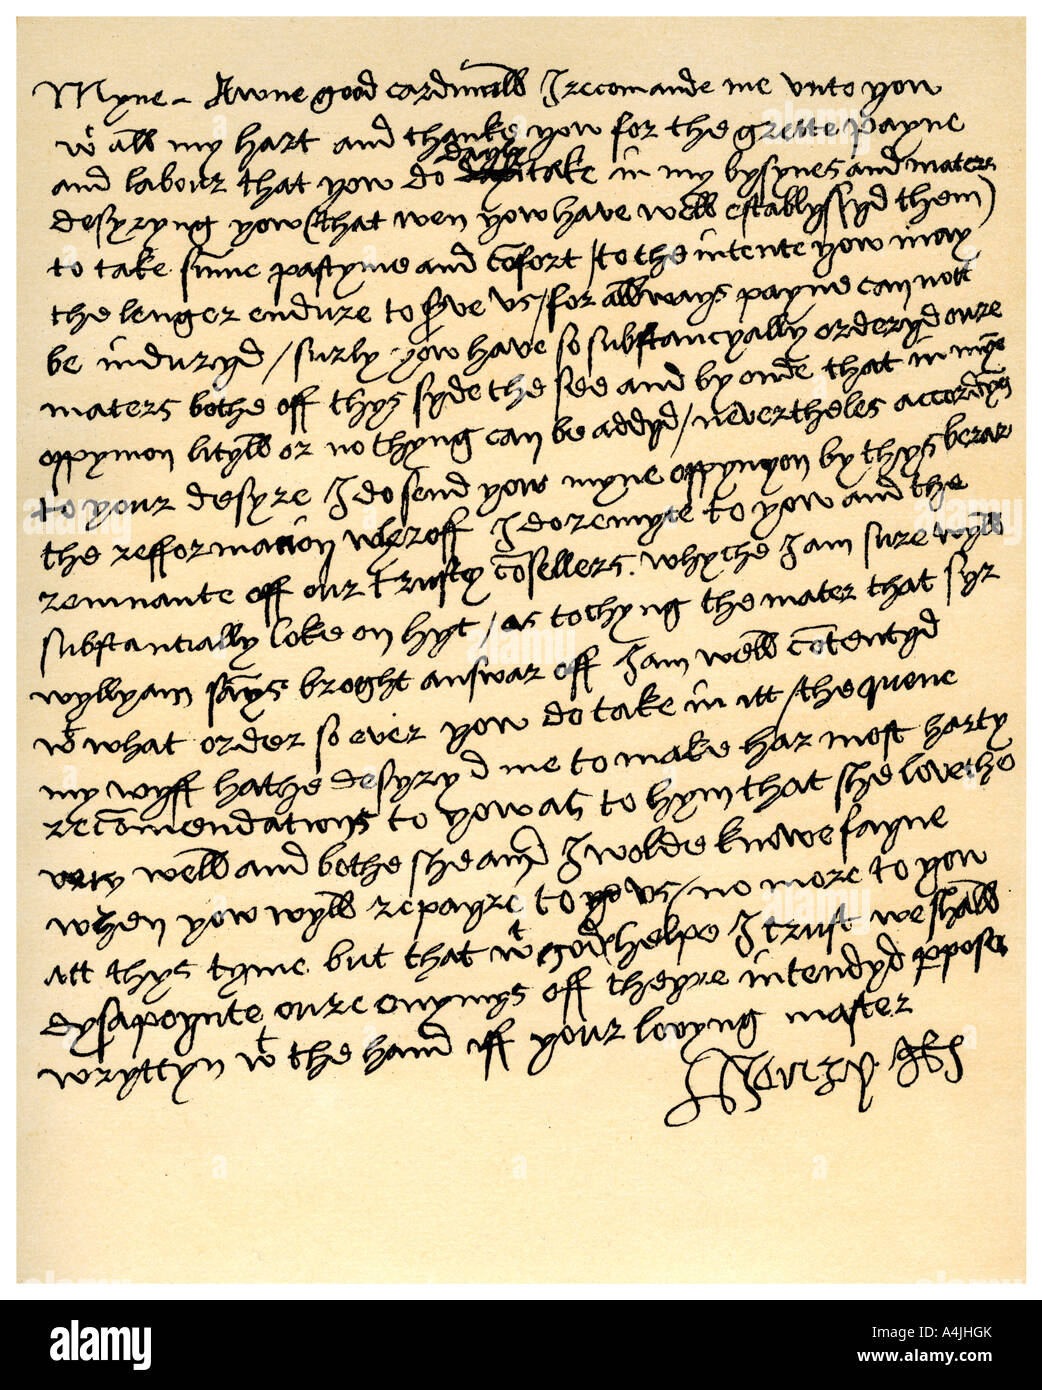 Myne Awne good cardinall I recomande me unto yow
wt all my hart and thanke yow for the grette payne
and labour that yow do dayly take in my bysynes and maters
desyryng yow (that wen yow have well establyssyd them)
to take summe pastyme and cõfort / to the intente yow may
the lenger endure to serve us / for allways payne can nott
be induryd / surly yow have so substancyally orderyd oure
maters bothe off thys syde the see and byonde that in myne
oppynion lityll or no thyng can be addyd / nevertheles accordyng
to your desyre I do send yow myne oppynyon by thys berar
the refformacion wheroff I do remyte to yow and the
remnante off our trusty cõsellers. whyche I am sure wyll
substantially loke on hyt / as tochyng the mater that syr
wyllyam says broght answar off I am well cõtentyd
wt what order so ever yow do take in itt / the quene
my wyff hathe desyryd me to make har most harty
recõmendations to yow as to hym that she lovethe
very well and bothe she and I wolde knowe fayne
when yow wyll repayre to us / no more to yow
att thys tyme but that wt gods helpe I trust we shall
dysapoynte oure enymys off theyre intendyd pposes
wryttyn wt the hand off your lovyng master
Henry R
alamy
A4JHGK
www.alamy.com